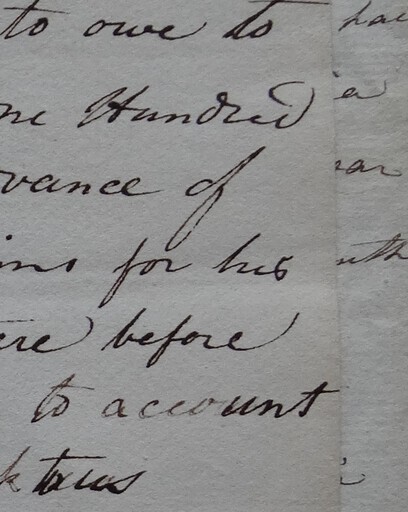 to owe to
ne Hundred
vance of
ins for his
ere before
to account
k taws